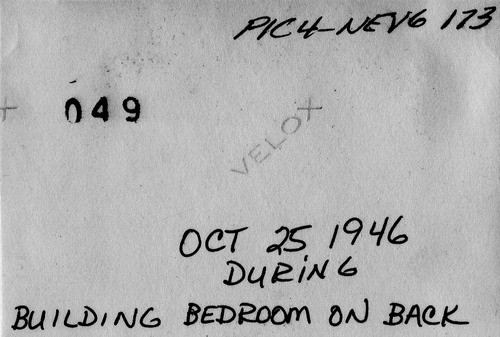 PIC4-NEV6 173
049
VELOX
OCT 25 1946
DURING
BUILDING BEDROOM ON BACK